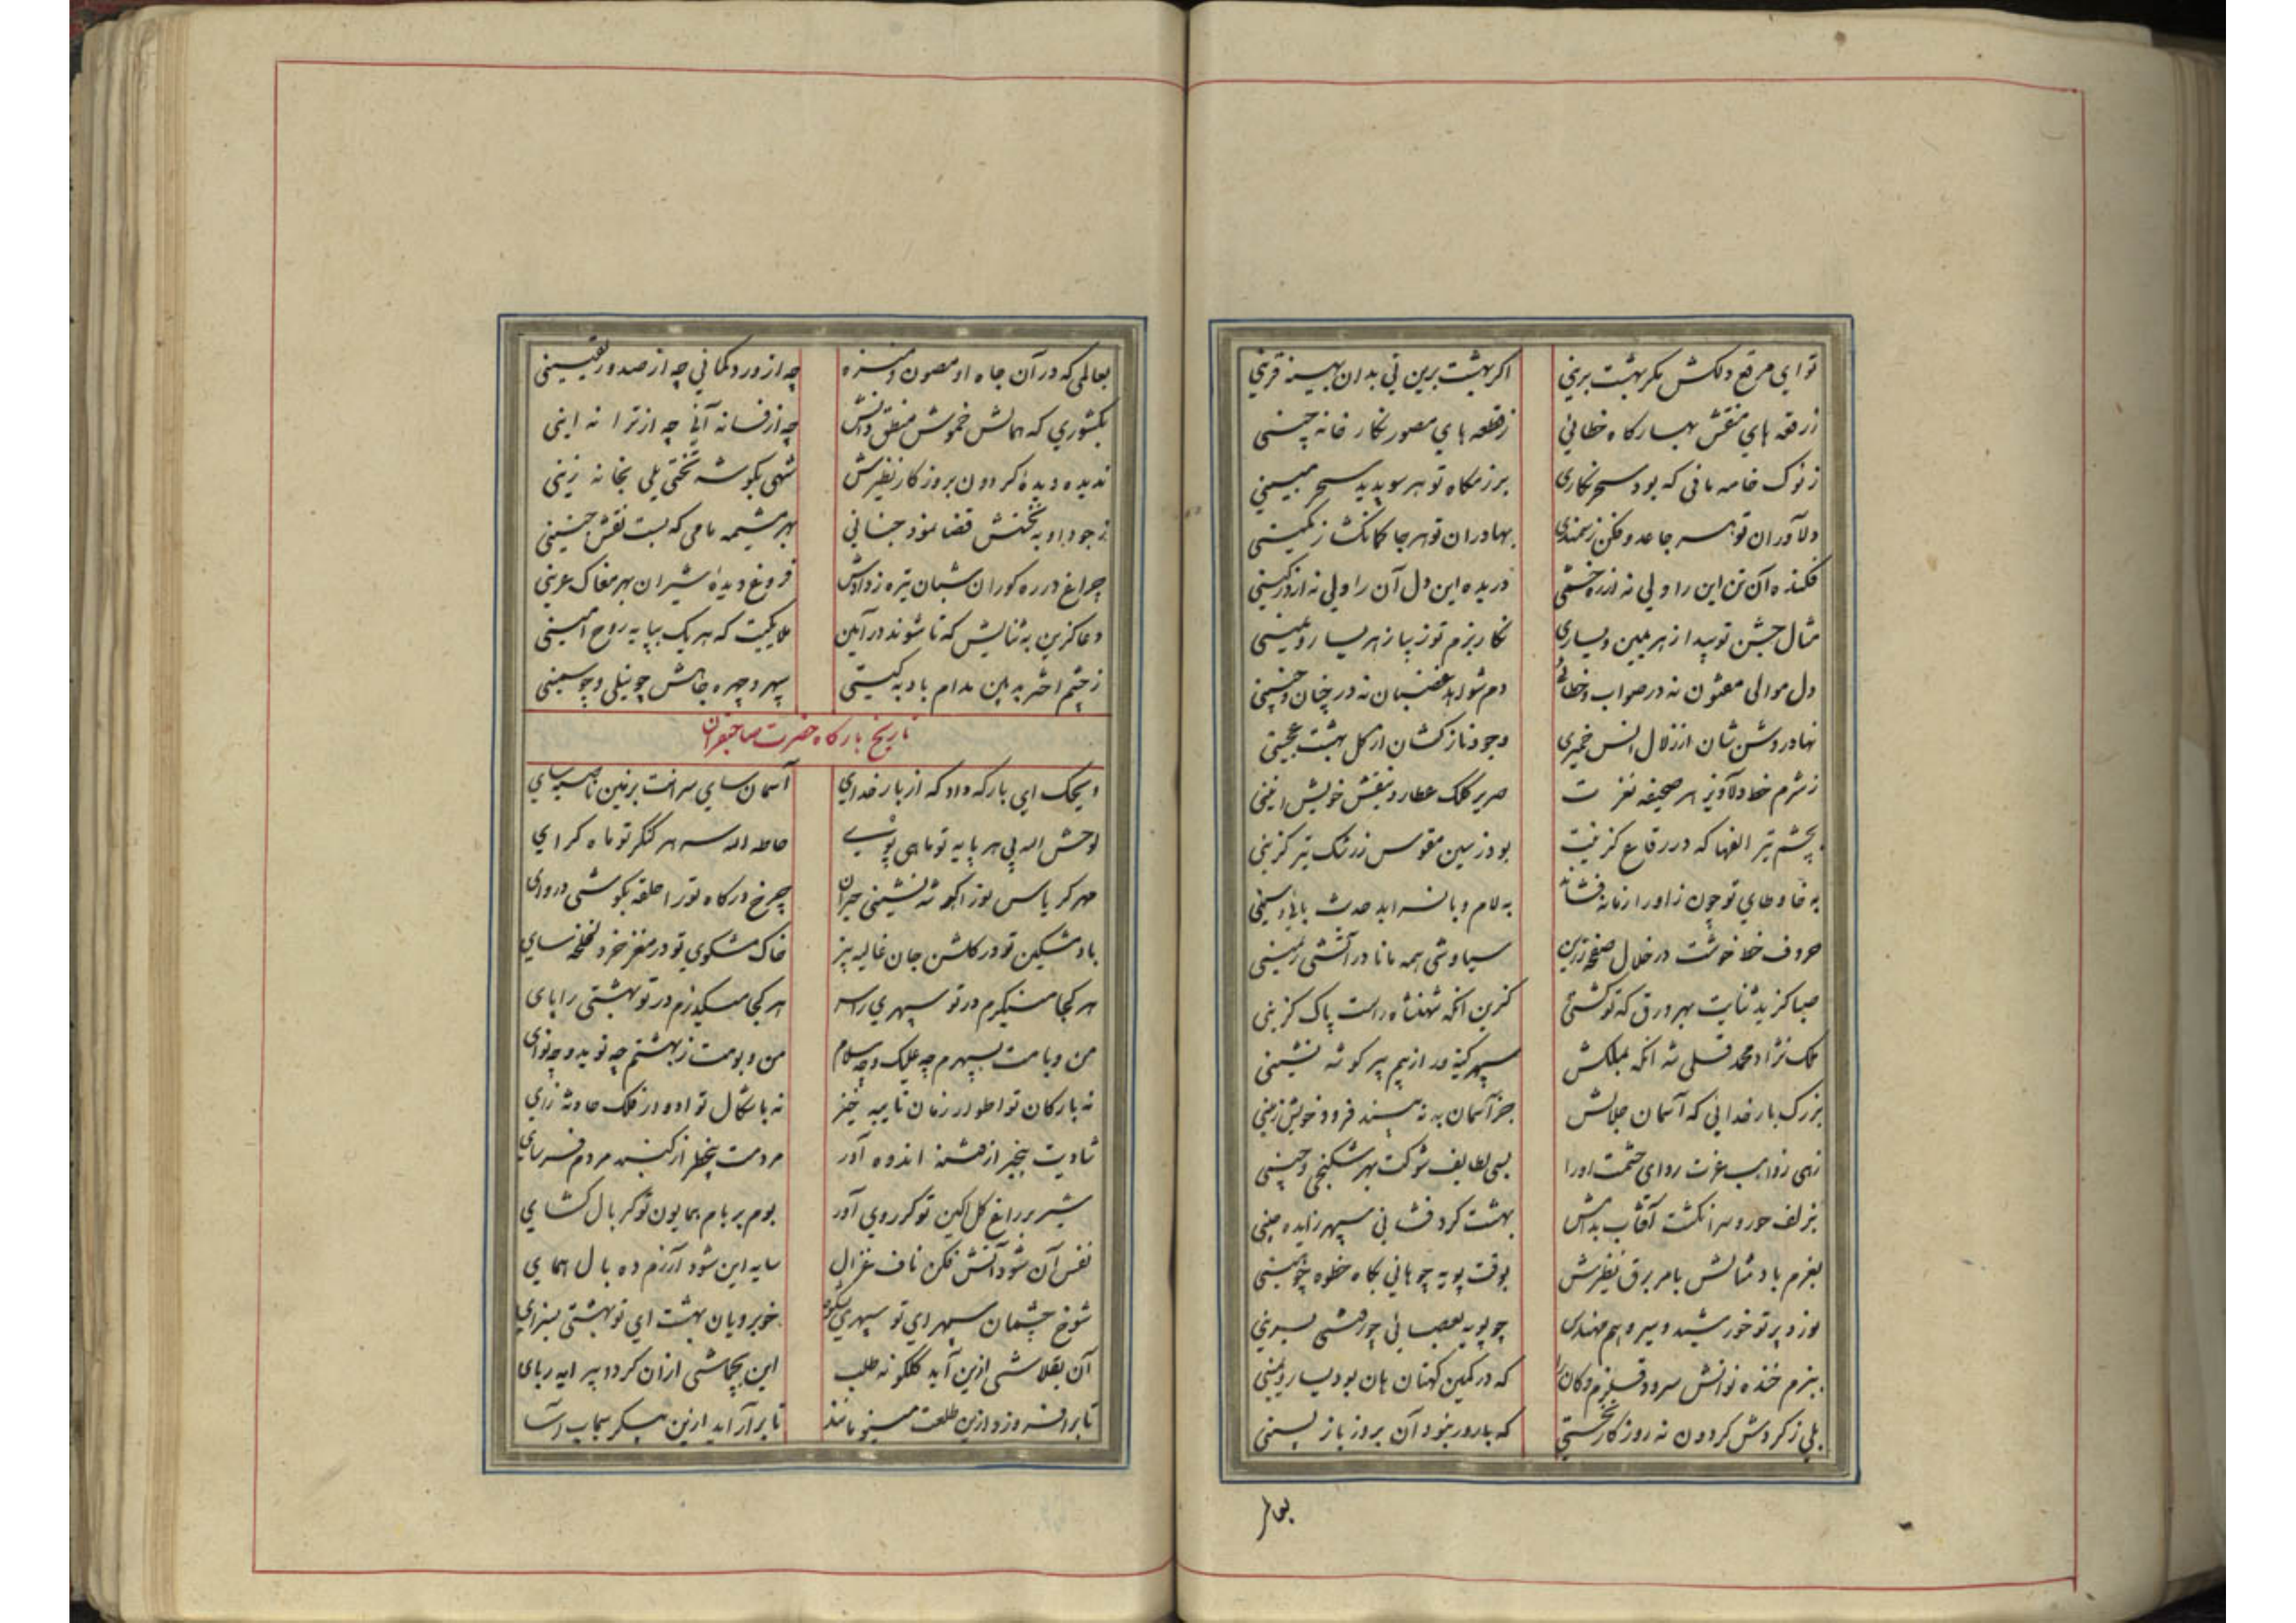 تو ای مرقع دلکش مگر بهشت برینی اگر بهشت برین نی بدان بهینه قرینی
ز رقعه های منقش بهار گاه خطائی ز قطعه های مصور نگار خانه چینی
ز نوک خامه مانی که بود سحر نگاری برزمگاه تو هر سو پدید سحر مبینی
دلاوران تو هر جا عدو فکن ز سمندی بهادران تو هر جا کمانکش ز کمینی
فکنده آن تن این را ولی نه از ره خشمی دریده این دل آن را ولی نه از در کینی
مثال جشن تو پیدا ز هر یمین و یساری نگار بزم تو زیبا ز هر یسار و یمینی
دل موالی مفتون نه در صواب و خطائی دم شواهد غضبان نه در چنان و چنینی
نهاد روشنشان از زلال انس خمیری وجود نازکشان از گل بهشت عجینی
ز شرم خط دلاویز هر صحیفه نغزت صریر کلک عطارد بنقش خویش انینی
بچشم تیر الفها که در رقاع گزینت بود ز سین مقوس ز رشک تیر گزینی
به خا و طای تو چون زاور از نقطه فشاند به لام و با سراید حدیث بائی و سینی
حروف خط خوشت در خلال صفحه زرین سیاوشی همه مانا در آتشی رمینی
صبا گزید ثنایت بهر ورق که تو گشتی گزین انکه شهنشاه راست پاک گزینی
ملک نژاد محمد قلی شه انکه بملکش سپهر کینه ور از بیم پیر گوشه نشینی
بزرگ بار خدائی که آسمان جلالش جز آسمان به نه بیند فرود خویش زمینی
زهی ز واهب عزت ردای حشمت او را بسی لطایف شوکت بهر شکنجی و چینی
بزلف حور و سر انگشت آفتاب بدامش بهشت گرد فشانی سپهر زایده چینی
بعزم باد مثالش بامر برق نظیرش بوقت پویه چو بانی بگاه خطوه چو بینی
بوزد پرتو خورشید و سیر وهم مهندس چو پویه بعصائی چو رقشی بسرینی
ببزم خنده نوالش سرود قلزم و کان را که در کمین کهتان هان بود یسار و یمینی
بلی ز گردش گردون نه روزگار نخستی که بارور نبود آن بروز باز پسینی
بعالم
بعالمی که در آن جاه او مصون و منزه چه از ورود گمانی چه از صدور یقینی
بکشوری که همالش خموش منطق دانش چه از فسانه آنی چه از ترانه اینی
ندیده دیده گردون بروزگار نظیرش شهی بگوشه تختی یلی بخانه زینی
ز جود او به تختش قضا نمود جنانی بهر مشیمه مامی که بست نقش جنینی
چراغ در ره گوران شبان تیره ز دادش فروغ دیده شیران بهر مغاک عرینی
دعا گزین به ثنایش که تا شوند در آمین ملایکیت که هر یک بپایه روح امینی
ز چشم اختر بد بین مدام باد به گیتی سپهر و چهره جاهش چو نیلی و چو سینی
تاریخ بارگاه حضرت صاحبقران
ویحک ای بارگه داد که از بار خدای آسمان سای سرافت بزمین ناصیه سای
لوحش الله پی هر پایه تو ماهی پوی حاطه الله سر هر کنگر تو ماه گرای
مهر کریاس تو را گوشه نشینی حیران چرخ درگاه تو را حلقه بگوشی دروای
باد مشکین تو در گلشن جان غالیه بیز خاک مشکوی تو در مغز خرد لخلخه سای
هر کجا مینگرم در تو سپهری راسر هر کجا میگذرم در تو بهشتی را پای
من و بامت بسپهرم چه علیک و چه سلام من و بومت ز بهشتم چه نوید و چه نوای
نه بارکان تو اطوار زمان نایبه خیز نه باشکال تو ادوار فلک حادثه زای
شادیت بیخبر از فتنه اندوه آور مردمت بیخطر از گنبد مردم فرسای
شیر بر راغ گل آگین تو گر روی آور بوم بر بام همایون تو گر بال گشای
نفس آن شود آتش فکن ناف غزال سایه این شود آزرم ده بال همای
شوخ چشمان سپهر ای تو سپهری بشکوه خوبرویان بهشت ای تو بهشتی بسزای
آن بقلاشی ازین آید گلگونه طلب این بجماشی از آن گردد پیرایه ربای
تا برافروزد ازین طلعت مینو مانند تا برآراید ازین پیکر سیماب آسا